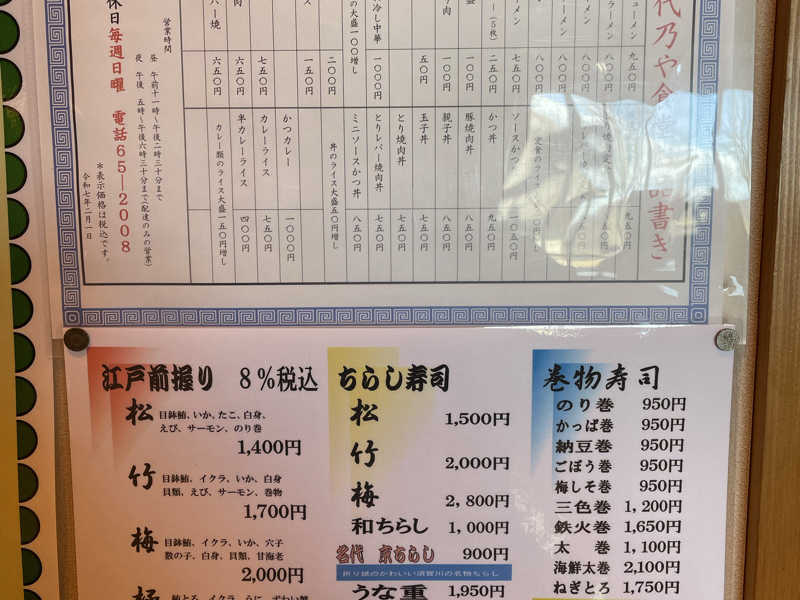 代乃や食堂
品書き
九五〇円
八〇〇円
八〇〇円
八〇〇円
七五〇円
二五〇円
一〇〇円
一〇〇円
五〇円
の大盛一〇〇増し
冷し中華
一〇〇〇円
二〇〇円
一五〇円
七五〇円
六五〇円
六五〇円
定食のライス
ソースかつ
一〇五〇円
かつ丼
九五〇円
豚焼肉丼
八五〇円
親子丼
八五〇円
玉子丼
七五〇円
とり焼肉丼
七五〇円
とりレバー焼肉丼
七五〇円
ミニソースかつ丼
八五〇円
丼のライス大盛五〇円増し
かつカレー
一〇〇〇円
カレーライス
七五〇円
半カレーライス
四〇〇円
カレー類のライス大盛
一五〇円増し
営業時間
昼 午前十一時〜午後二時三十分まで
夜 午後 五時〜午後六時三十分まで(配達のみの営業)
休日毎週日曜 電話65―2008
*表示価格は税込です。
令和七年二月一日
江戸前握り 8%税込
松 目鉢鮪、いか、たこ、白身、
えび、サーモン、のり巻
1,400円
竹 目鉢鮪、イクラ、いか、白身
貝類、えび、サーモン、巻物
1,700円
梅 目鉢鮪、イクラ、いか、穴子
数の子、白身、貝類、甘海老
2,000円
鮪とろ、イクラ、うに、ずわい蟹
ちらし寿司
松 1,500円
竹 2,000円
梅 2,800円
和ちらし 1,000円
名代 京ちらし 900円
折り紙のかわいい須賀川の名物ちらし
うな重 1,950円
巻物寿司
のり巻 950円
かっぱ巻 950円
納豆巻 950円
ごぼう巻 950円
梅しそ巻 950円
三色巻 1,200円
鉄火巻 1,650円
太 巻 1,100円
海鮮太巻 2,100円
ねぎとろ 1,750円